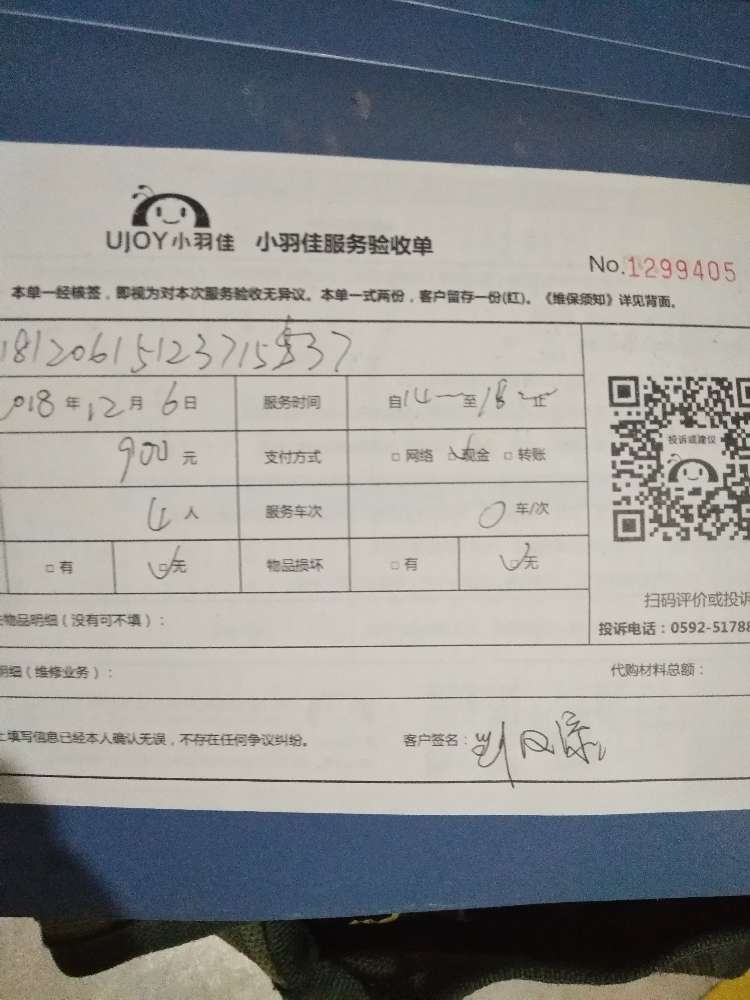 UJOY小羽佳 小羽佳服务验收单
No.1299405
本单一经核签，即视为对本次服务验收无异议。本单一式两份，客户留存一份(红)。《维保须知》详见背面。
018 年 12 月 6 日 服务时间 自 14 至 18 止
900 元 支付方式 □ 网络 现金 □ 转账
投诉或建议
4 人 服务车次 0 车/次
□ 有 □无 物品损坏 □ 有 □无
扫码评价或投诉
物品明细（没有可不填）：
投诉电话：0592-51788
明细（维修业务）： 代购材料总额：
上填写信息已经本人确认无误，不存在任何争议纠纷。 客户签名：